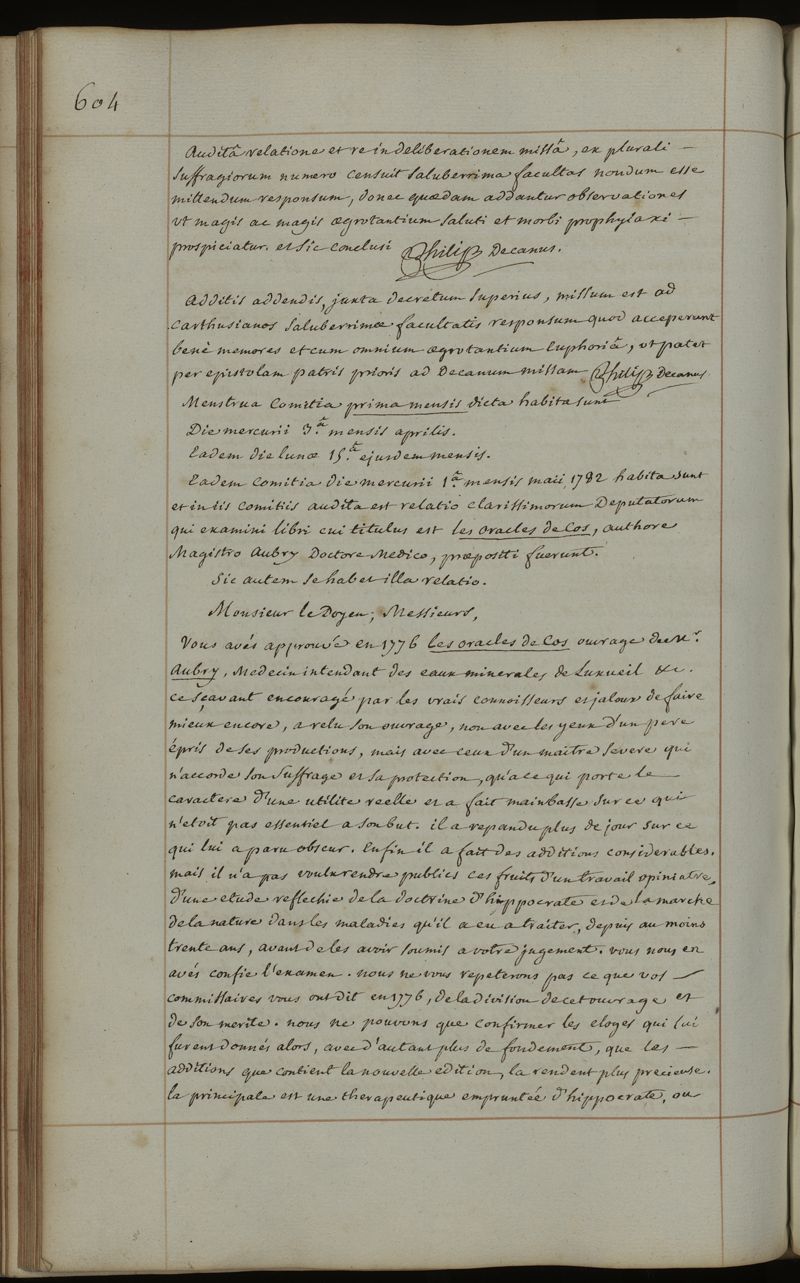 604
Auditâ relatione et re in deliberationem missâ, ex plurali –
suffragiorum numero censuit saluberrima facultas nondum esse
mittendum responsum, donec quædam addantur observationes
ut magis ac magis ægrotantium saluti et morbi prophylaxi –
prospiciatur. et sic conclusi Philip Decanus.
Additis addendis, juxta decretum superius, missum est ad
Carthusianos saluberrimæ facultatis responsum quod acceperunt
benè memores et cum omnium ægrotantium Euphoriâ, ut patet
per epistolam patris prioris ad Decanum missam Philip Decanus.
Menstrua Comitia prima mensis dicta habita sunt
Die mercurii 3.a mensis aprilis.
Eadem die lunæ 15.a ejusdem mensis.
Eadem Comitia die mercurii 1.a mensis maii 1782 habita sunt
et in iis Comitiis audita est relatio clarissimorum Deputatorum
qui examini libri cui titulus est les oracles de Cos, authore
Magistro Aubry Doctore Medico, præpositi fuerunt.
Sic autem se habet illa relatio.
Monsieur le Doyen, Messieurs,
Vous avés approuvé en 1776 les oracles de Cos ouvrage de Mr.
Aubry, Medecin intendant des eaux minerales de Luxueil &c.
ce sçavant encouragé par les vrais connoisseurs et jaloux de faire
mieux encore, a relu son ouvrage, non avec les yeux d'un pere
épris de ses productions, mais avec ceux d'un maitre severe qui
n'accorde son suffrage et sa protection, qu'a ce qui porte le –
caractere d'une utilite reelle et a fait mainbasse sur ce qui
n'etoit pas essentiel a son but. il a repandu plus de jour sur ce
qui lui a paru obscur. Enfin il a fait des additions considerables.
mais il n'a pas voulu rendre publics ces fruits d'un travail opiniatre,
d'une etude reflechie de la doctrine d'hippocrate et de la marche
de la nature dans les maladies qu'il a eu a traiter, depuis au moins
trente ans, avant de les avoir soumis a votre jugement. vous nous en
avés confie l'examen. nous ne vous repeterons pas ce que vos –
commissaires vous ont dit en 1776, de la division de cet ouvrage et
de son merite. nous ne pouvons que confirmer les eloges qui lui
furent donnés alors, avec d'autant plus de fondement, que les –
additions que contient la nouvelle edition, la rendent plus precieuse.
la principale est une therapeutique empruntée d'hippocrate, ou